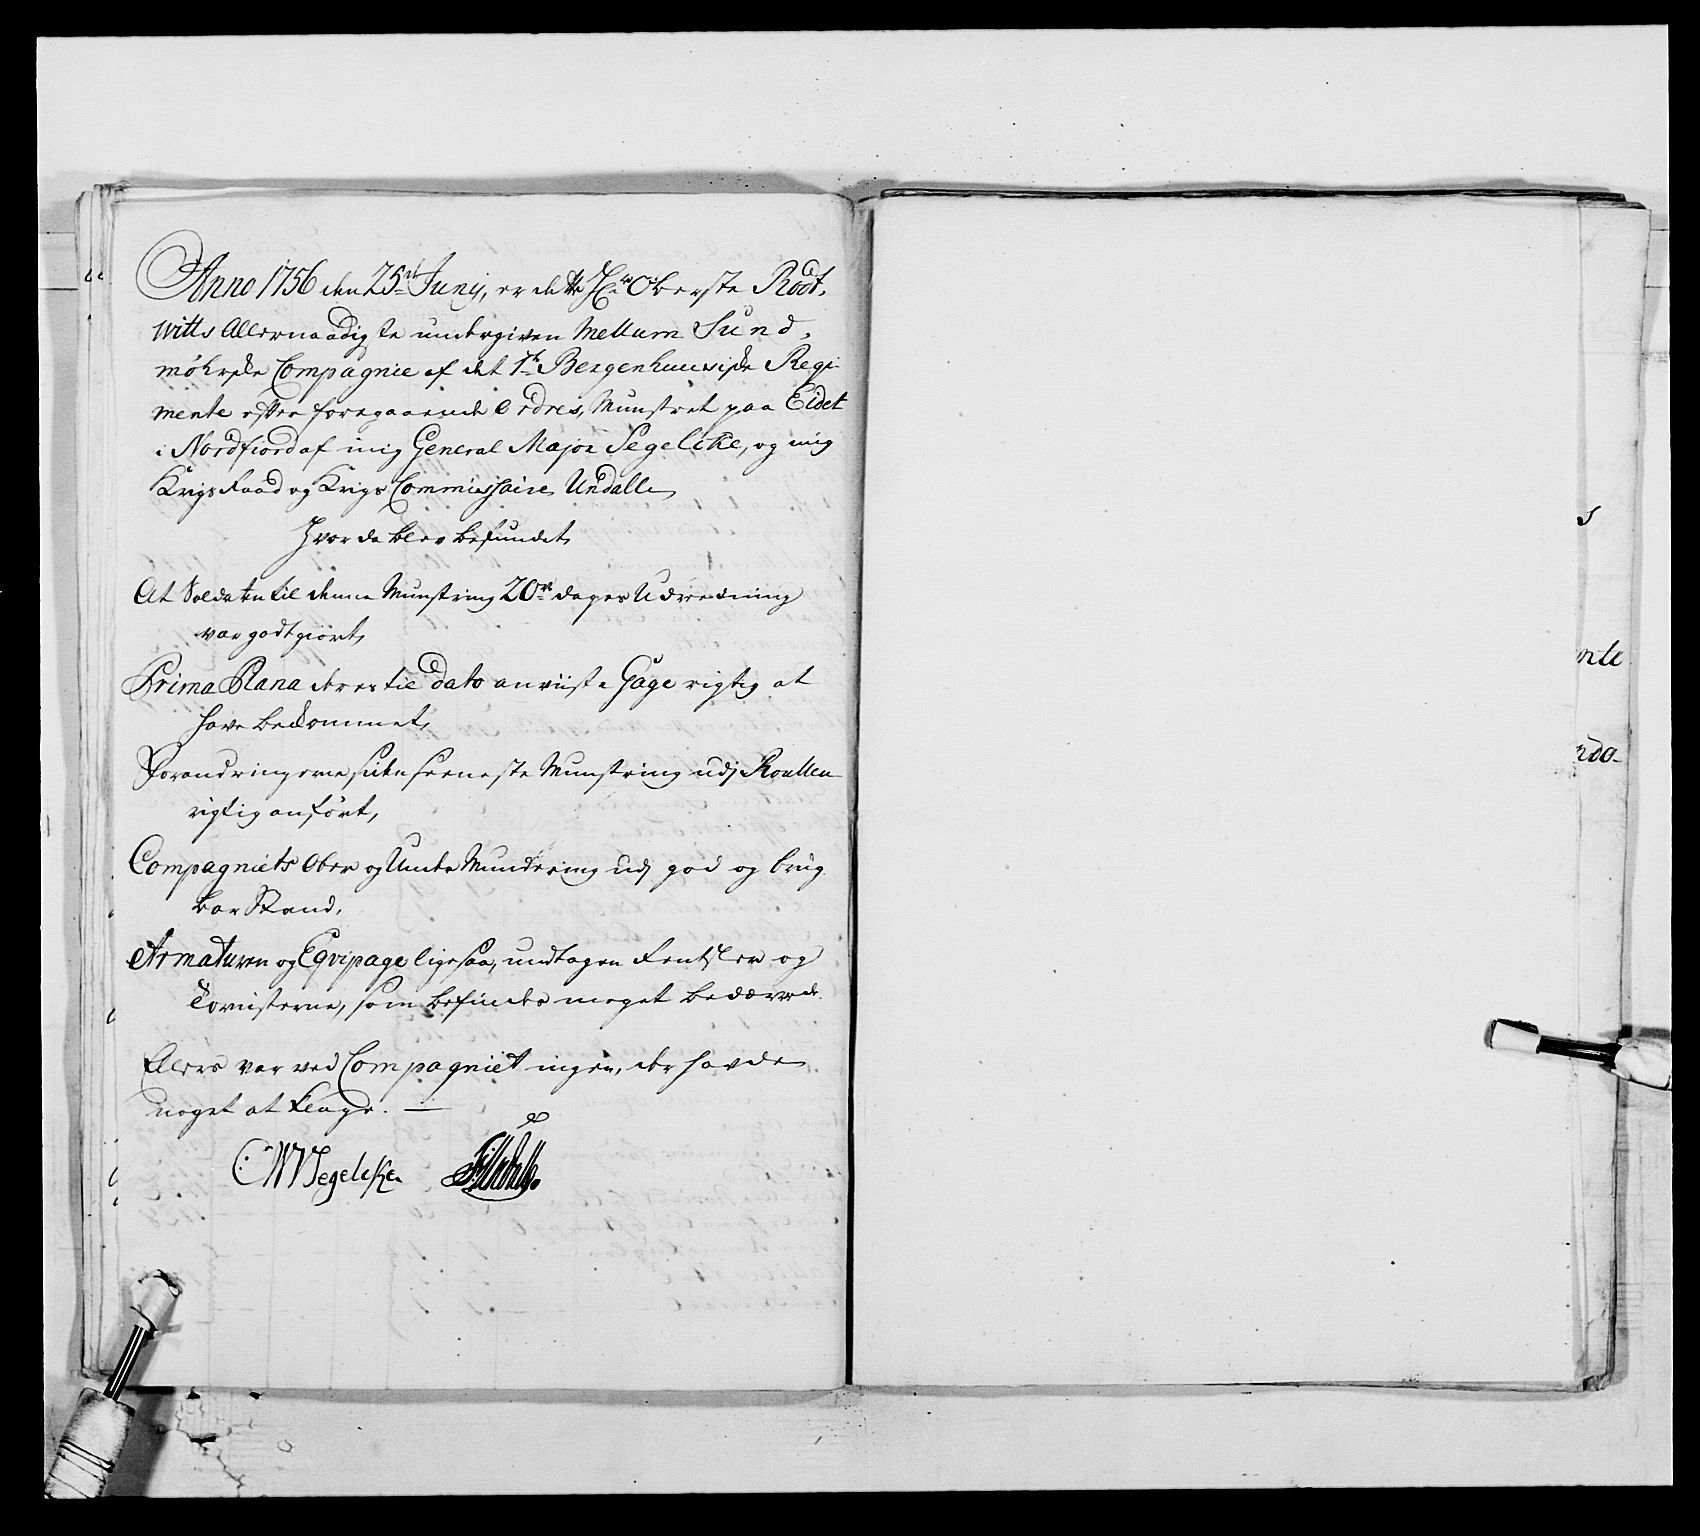 Anno 1756 den 25de Junij, er dette Hr Oberste Rødt,
witts Allernaadigste undergivne Mellum Sund,
møhrske Compagnie af det 1te Bergenhuusiske Regi-
mente efter foregaaende Ordres, Munstret paa Eidet
i Nordfiord af mig General Major Segelcke, og mig
Krigs Raad og Krigs Commissaire Undall,
Hvor da blev befundet,
At Soldaten til denne Munstring 20de dages Udreedning
var godtgiort,
Prima Plana deres til Dato anviiste Gage rigtig at
have bekommet,
Forandringerne siden seeneste Munstring udj Roullen
rigtig anført,
Compagniets Ober og Under Mundering udj god og brug
bar Stand,
Armaturen og Eqvipage ligesaa, undtagen Rentsler og
Tornisterne, som befindes meget bedærvede.
Ellers var ved Compagniet ingen, der havde
noget at klage. —
C: W Segelcke
s
nte
rdo-